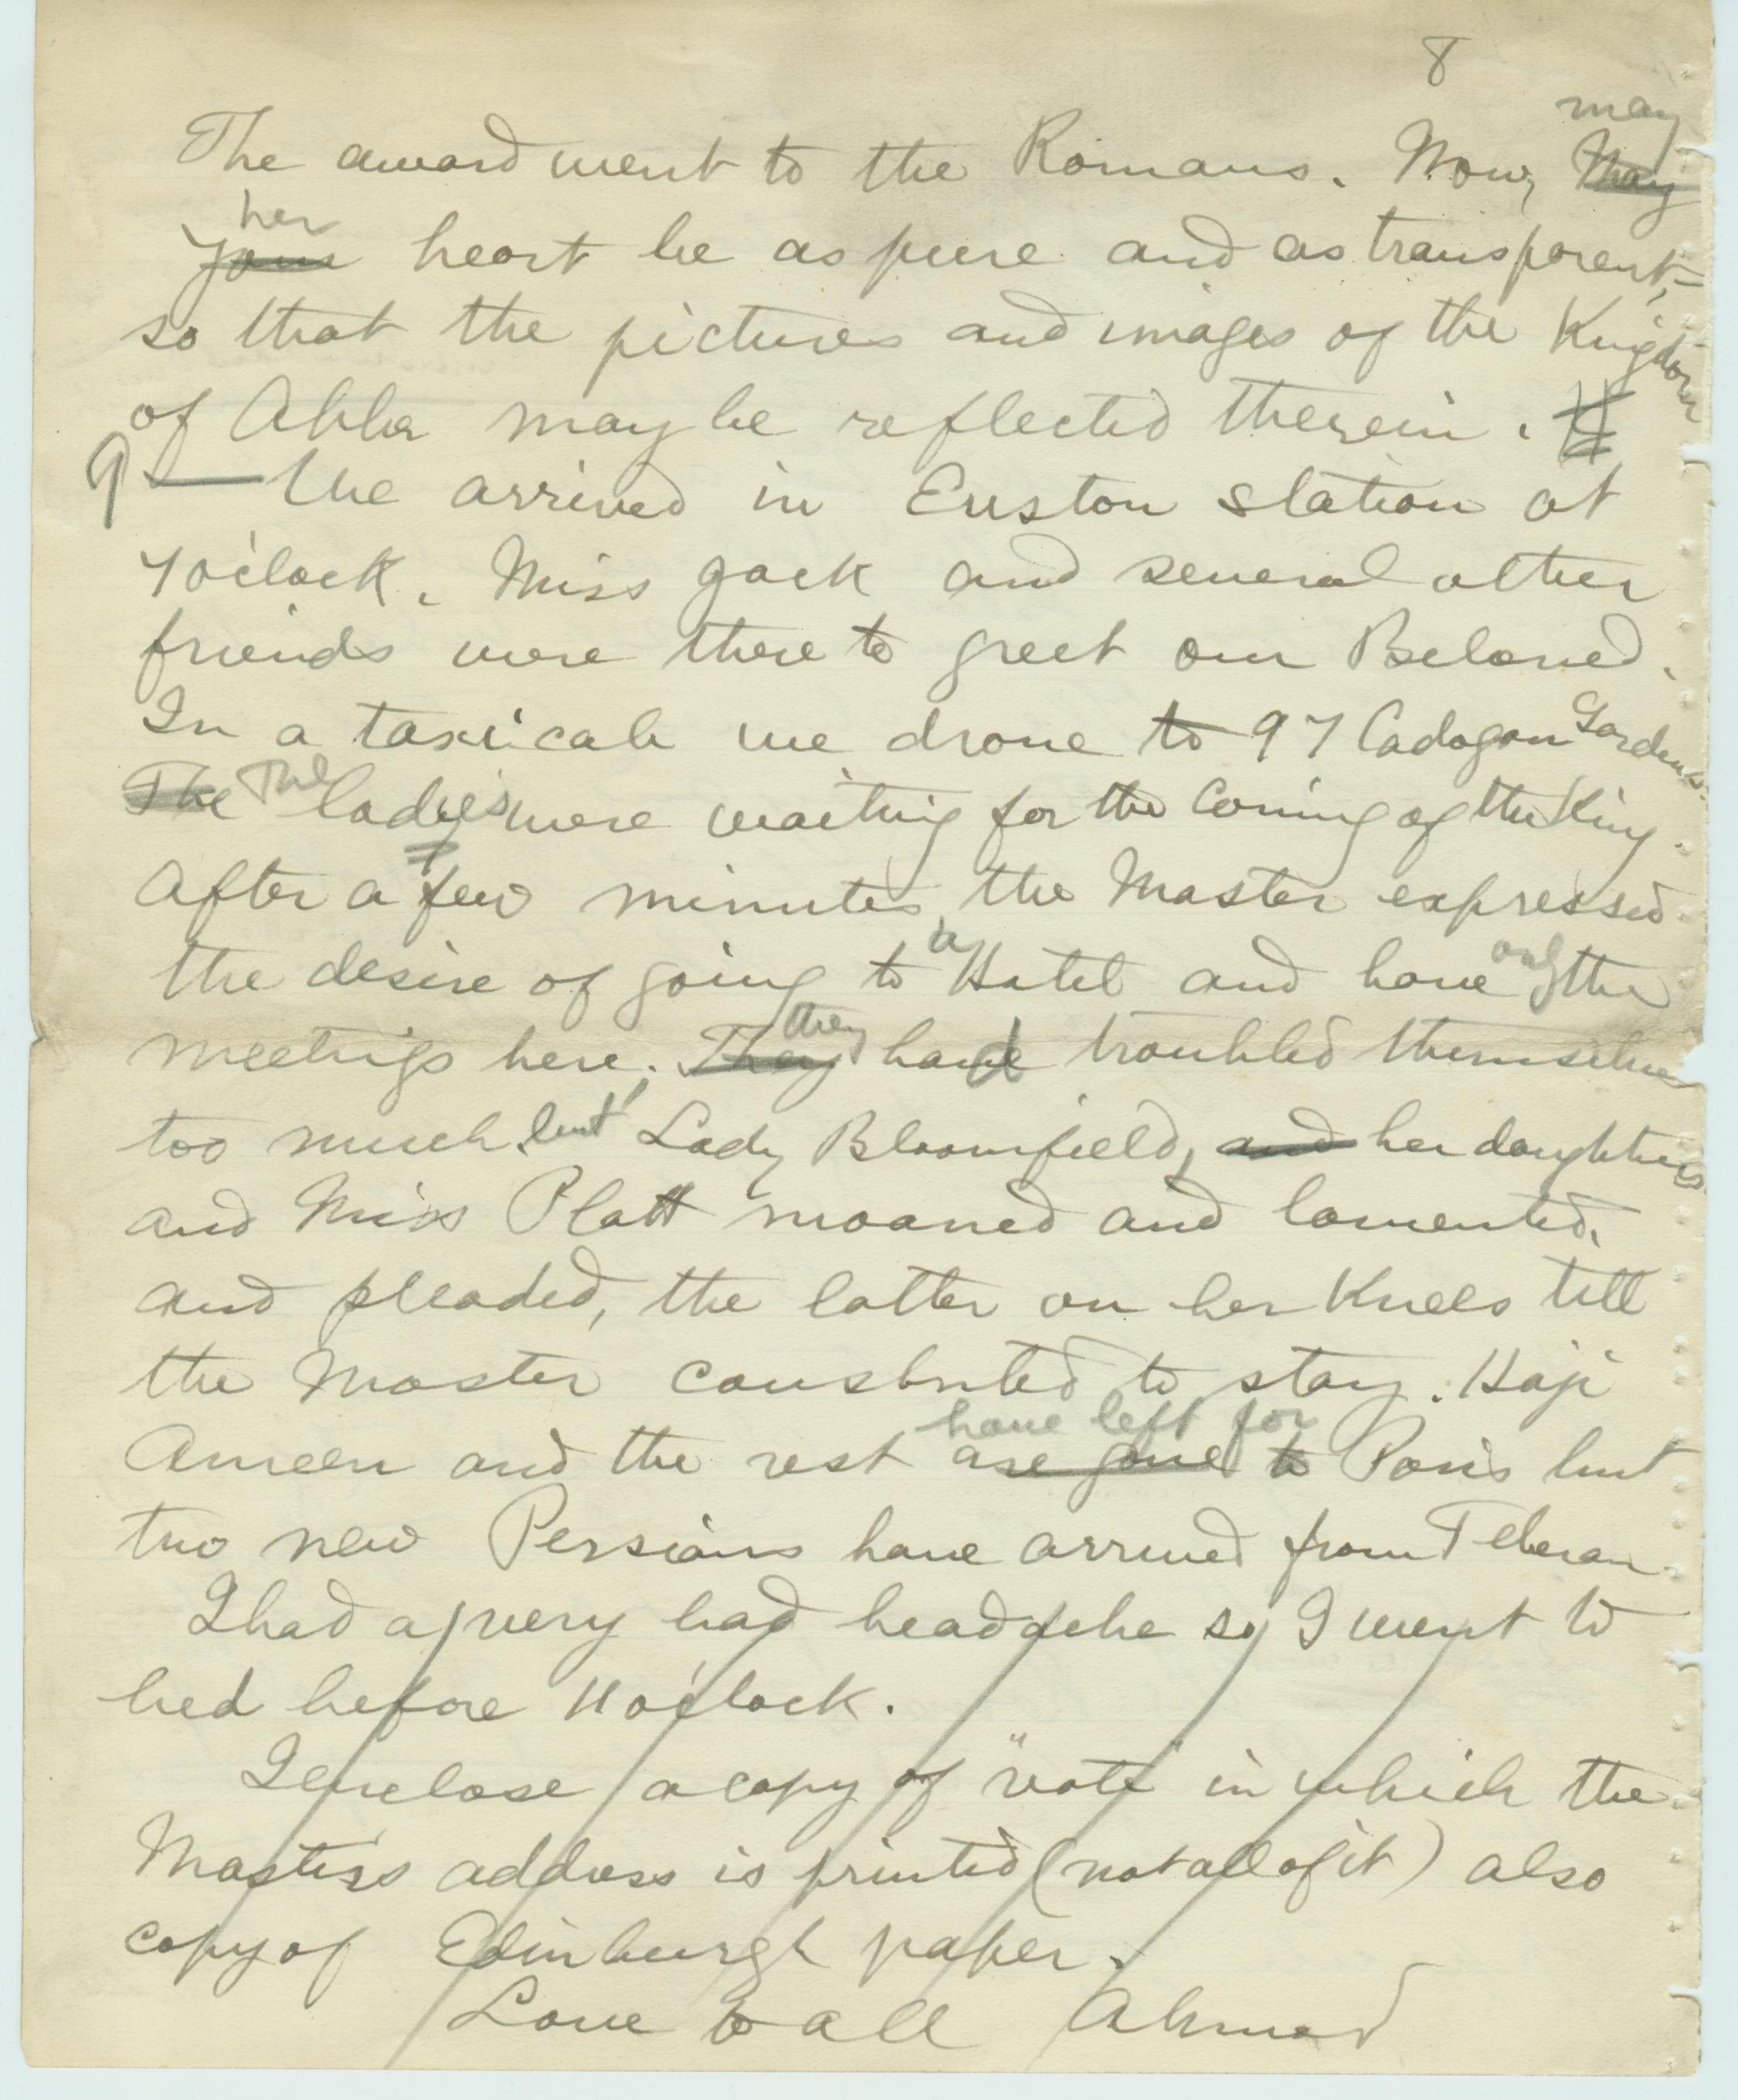 8
may
The award went to the Romans. Now, May
her
your heart be as pure and as transparent,
so that the pictures and images of the Kingdom
of Abha may be reflected therein.
We arrived in Euston station at
7 o'clock. Miss Jack and several other
friends were there to greet our Beloved.
In a taxi-cab we drove to 97 Cadogan Gardens.
The The ladies were waiting for the coming of the King.
After a few minutes, the Master expressed
the desire of going to a Hotel and have only the
they
meetings here; They had troubled themselves
too much, but Lady Bloomfield, and her daughters
and Miss Platt moaned and lamented,
and pleaded, the latter on her knees till
the Master consented to stay. Haji
have left for
Ameen and the rest are gone to Paris but
two new Persians have arrived from Teheran.
I had a very bad headache so I went to
bed before 11 o'clock.
I enclose a copy of "vote" in which the
Master's address is printed (not all of it) also
copy of Edinburgh paper.
Love to all Ahmad